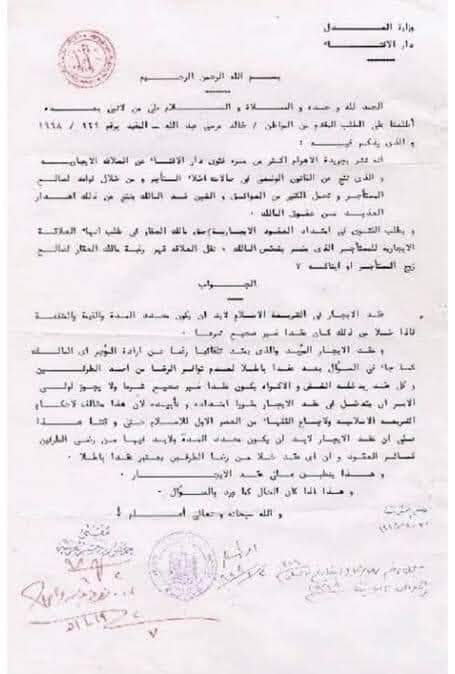 وزارة العدل
دار الافتاء
بسم الله الرحمن الرحيم
الحمد لله و حده و الصلاة و السلام على من لا نبي بعده
اطلعنا على الطلب المقدم من المواطن / خالد موسى عبد الله - المقيد برقم ١٢٩ / ١٩٦٨
و الذى يذكر فيه :
انه نشر بجريدة الاهرام اكثر من مره فتوى دار الافتاء عن العلاقه الايجاريه
و التى تنتج عن القانون الوضعى فى حالات اخلاء المستأجر و من خلال قواعد لصالح
المستأجر و تحمل الكثير من و الغبن ضد المالك ينتج عن ذلك اهدار
العديد من حقوق المالك .
و يطلب الفتوى فى امتداد العقود الايجارية حق مالك العقار فى طلب انهاء العلاقة
الايجاريه للمستأجر الذى المالك ، نقل العلاقه قهر رغبة مالك العقار لصالح
زوج المستأجر او ابنائه ؟
الجواب
عقد الايجار فى الشريعة الاسلام لابد ان يكون محدد المدة والقيمة والمنفعة
فاذا خلا من ذلك كان عقدا غير صحيح شرعا .
و عقد الايجار المؤبد والذى يمتد تلقائيا رغما عن ارادة المؤجر اى المالك
كما جاء فى السؤال يعد عقدا باطلا لعدم توافر الرضا من احد الطرفين
و كل عقد يدخله الغش و الاكراه يكون عقدا غير صحيح شرعا ولا يجوز لولى
الامر ان يتدخل فى عقد الايجار بقوة امتداده و تأبيده لان هذا مخالف لاحكام
الشريعة الاسلامية ولاجماع الفقهاء من العصر الاول للاسلام حتى وقتنا هذا
على ان عقد الايجار لابد ان يكون محدد المدة ولابد فيها من رضى الطرفين
كسائر العقود و ان اى عقد خلا من رضا الطرفين يعتبر عقدا باطلا .
و هذا ينطبق على عقد الايجار .
و هذا اذا كان الحال كما ورد بالسؤال .
و الله سبحانه و تعالى أعلم